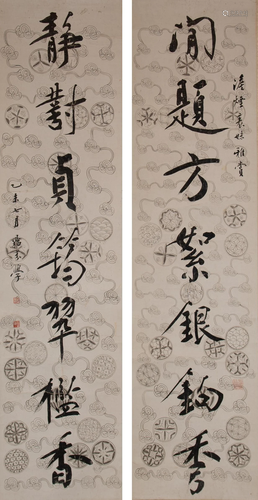 閒題方絮銀鉤秀
雅賞
靜對貞筠翠檻香
乙未七月